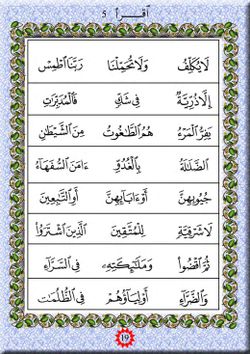 اقرأ 5
لَا يُكَلِّفُ وَلَا تُحَمِّلْنَا رَبَّنَا اطْمِسْ
إِلَّا ذُرِّيَّةٌ فِي شَكٍّ فَالْمُدَبِّرَاتِ
يَفِرُّ الْمَرْءُ هُمُ الطَّاغُوتُ مِنَ الشَّيْطَانِ
الضَّلَالَةَ بِالْغُدُوِّ ءَامَنَ السُّفَهَاءُ
جُيُوبِهِنَّ أَوْ ءَابَائِهِنَّ أَوِ التَّابِعِينَ
لَا شَرْقِيَّةٍ لِلْمُتَّقِينَ الَّذِينَ اشْتَرَوُا
ثُمَّ اقْضُوا وَمَلَائِكَتِهِ فِي السَّرَّاءِ
وَالضَّرَّاءِ أَوْلِيَاؤُهُمُ فِي الظُّلُمَاتِ
١٩